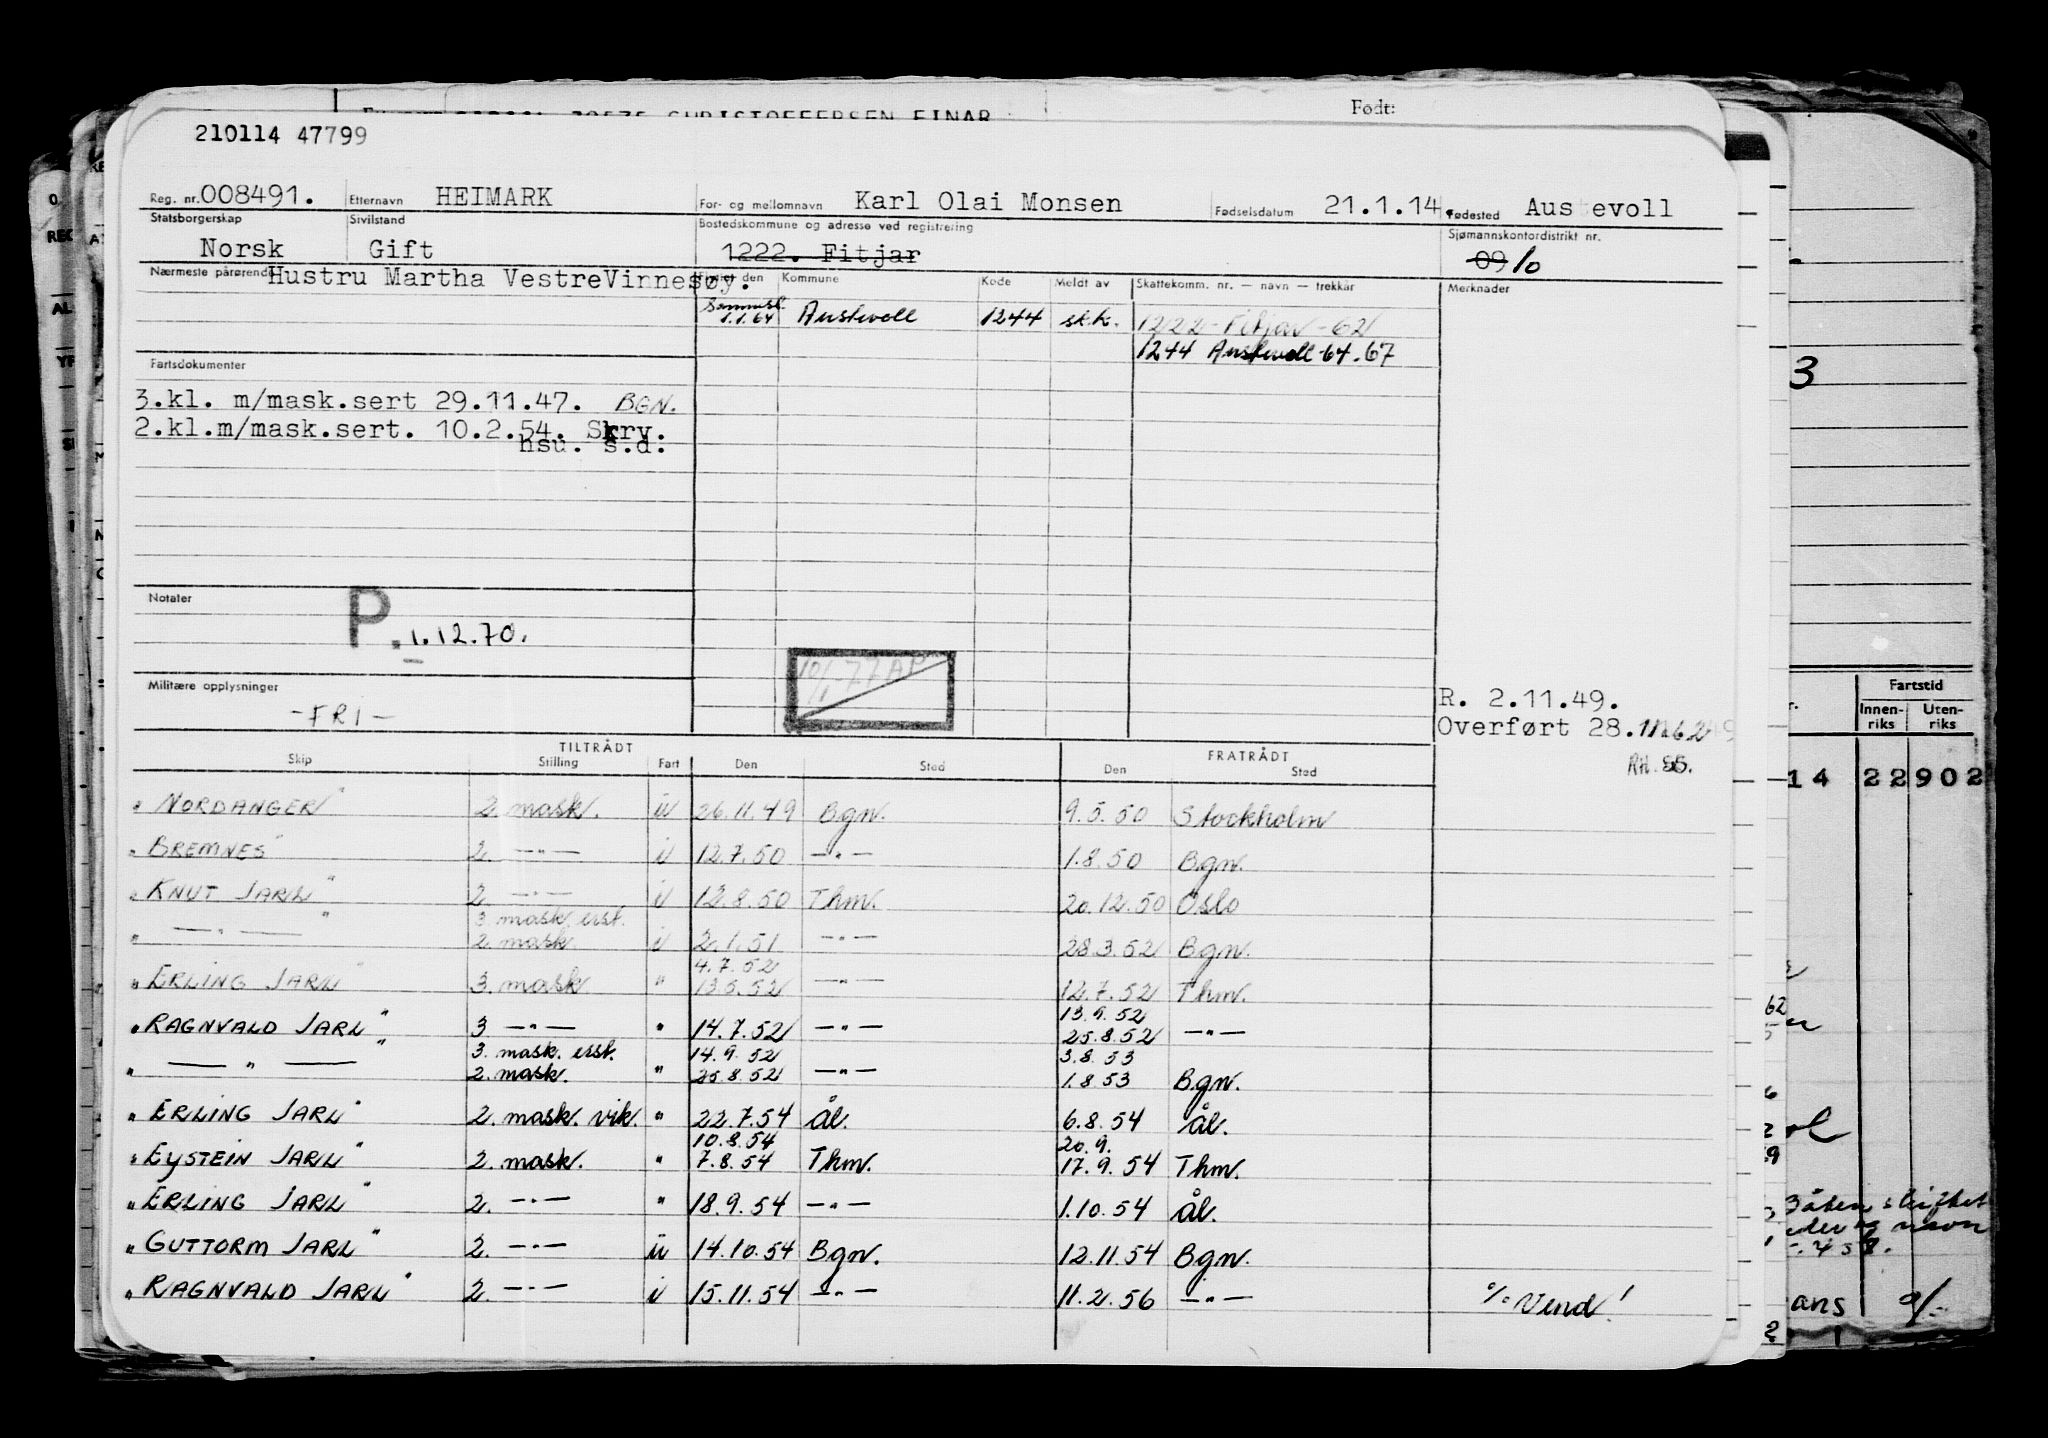 Født:
CHRISTOFFERSEN EINAR
210114 47799
Reg. nr. 008491. Etternavn HEIMARK For- og mellomnavn Karl Olai Monsen Fødselsdatum 21.1.14. Fødested Austevoll
Statsborgerskap Norsk Sivilstand Gift Bostedskommune og adresse ved registrering 1222. Fitjar Sjømannskontordistrikt nr. 09 10
Nærmeste pårørende Hustru Martha VestreVinnesøy.
Flyttet den Kommune Kode Meldt av Skattekomm. nr. — navn — trekkår Merknader
Sammensl. 1.1.64 Austevoll 1244 sk.k. 1222 - Fitjar - 62
1244 Austevoll 64.67
Fartsdokumenter
3.kl. m/mask.sert 29.11.47. BGN.
2.kl.m/mask.sert. 10.2.54. Skrv.
hsu. s.d.
Notater
P. 1.12.70.
10/1-77 AP
Militære opplysninger
-FRI-
R. 2.11.49.
Overført 28.
RH.
TILTRÅDT FRATRÅDT
Skip Stilling Fart Den Sted Den Sted
"NORDANGER" 2. mask. u 26.11.49 Bgn. 9.5.50 Stockholm
"BREMNES" 2. —"— i 12.7.50 —"— 1.8.50 Bgn.
"KNUT JARL" 2. —"— i 12.8.50 Thm. 20.12.50 Oslo
3 mask erst.
" —"— " 2. mask. i 2.1.51 —"— 28.3.52 Bgn.
4.7.52
"ERLING JARL" 3. mask " 13.5.52 —"— 12.7.52 Thm.
13.9.52
"RAGNVALD JARL" 3 —"— " 14.7.52 —"— 25.8.52 —"—
3. mask. erst. 14.9.52 3.8.53
" —"— " 2. mask. " 25.8.52 —"— 1.8.53 Bgn.
"ERLING JARL" 2. mask. vik. " 22.7.54 Ål. 6.8.54 Ål.
10.8.54 20.9.
"EYSTEIN JARL" 2. mask. " 7.8.54 Thm. 17.9.54 Thm.
"ERLING JARL" 2. —"— " 18.9.54 —"— 1.10.54 Ål.
"GUTTORM JARL" 2. —"— u 14.10.54 Bgn. 12.11.54 Bgn.
"RAGNVALD JARL" 2. —"— i 15.11.54 —"— 11.2.56 —"— % Vend!
3
Fartstid
Innen-riks Uten-riks
14 22902